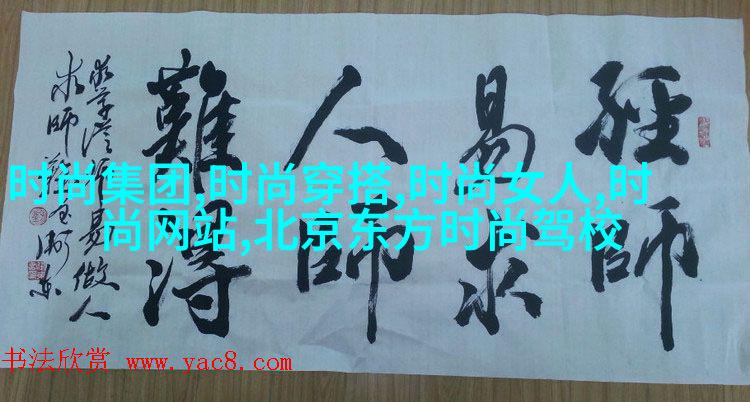 經師
易求
人師
難得
易做人
求師
时尚集团,时尚穿搭,时尚女人,时
尚网站,北京东方时尚驾校
书法欣赏 www.yac8.com